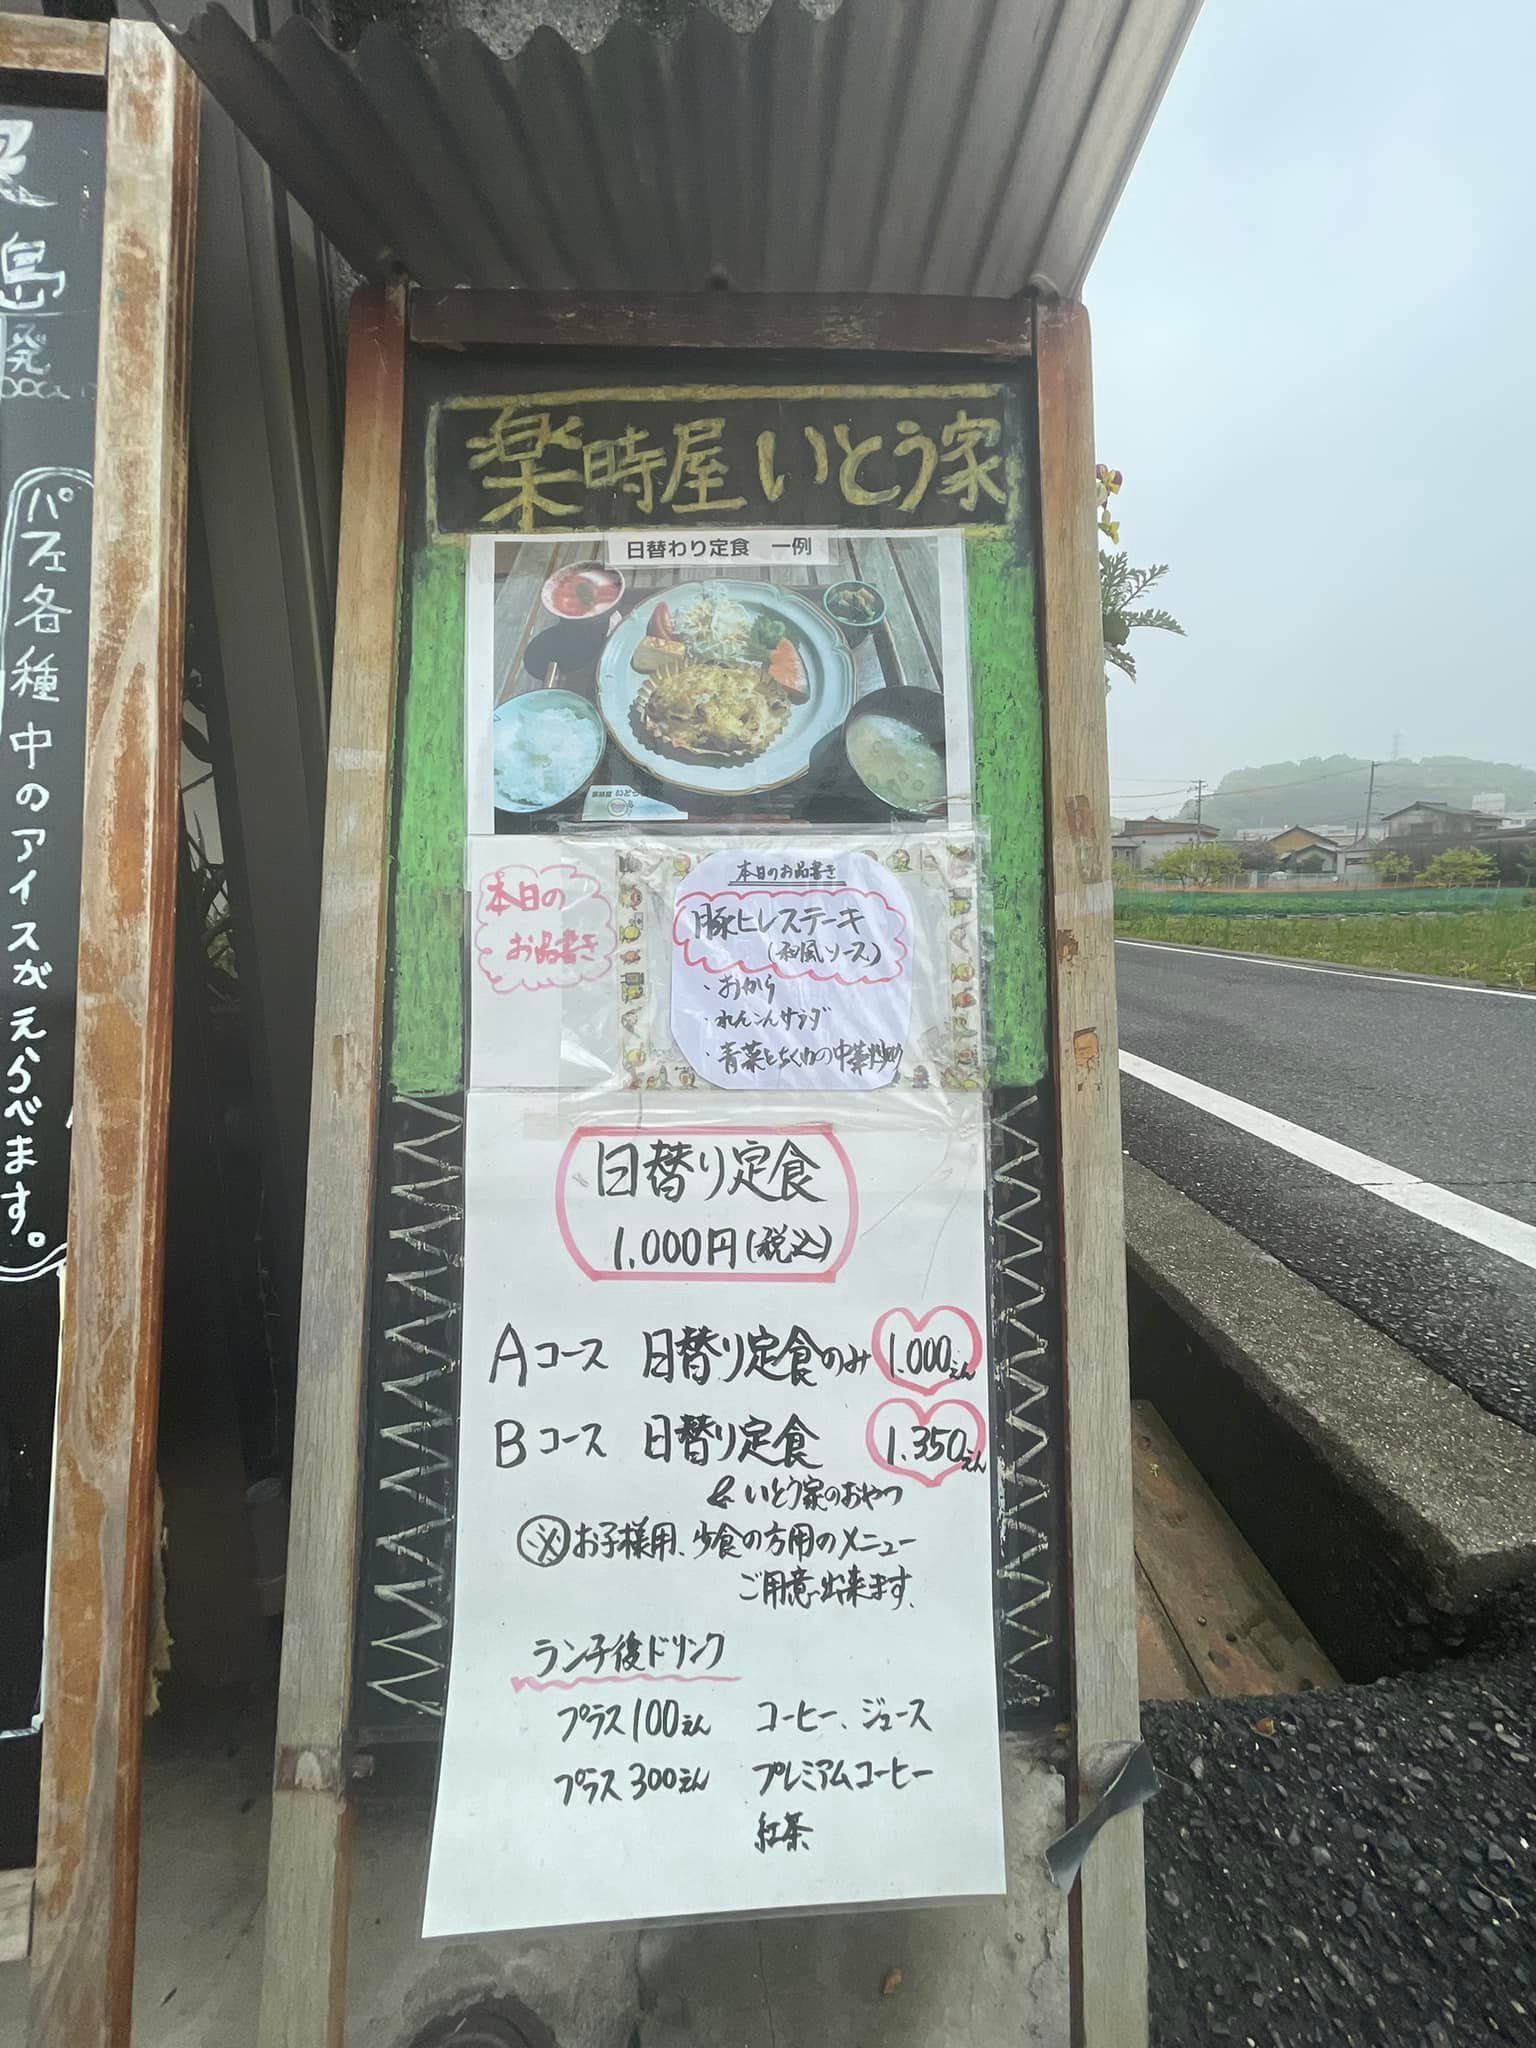 島
発
パフェ各種中のアイスがえらべます。
楽時屋 いとう家
日替わり定食 一例
本日の
お品書き
本日のお品書き
豚ヒレステーキ
(和風ソース)
・おから
・れんこんサラダ
・青菜とちくわの中華炒め
日替り定食
1.000円(税込)
Aコース 日替り定食のみ 1.000えん
Bコース 日替り定食 1.350えん
& いとう家のおやつ
※お子様用、少食の方用のメニュー
ご用意出来ます。
ランチ後ドリンク
プラス100えん コーヒー、ジュース
プラス300えん プレミアムコーヒー
紅茶